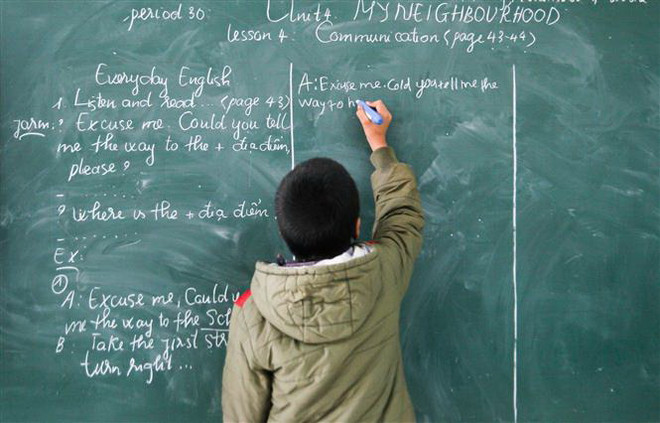 period 30:
Unit 4 MY NEIGHBOURHOOD
lesson 4: Communication (page 43-44)
Everyday English
1. Listen and read ... (page 43)
Form: ? Excuse me. Could you tell
me the way to the + địa điểm,
please?
? Where is the + địa điểm.
Ex:
1
A: Excuse me, Could y
me the way to the Sch
B: Take the first str
turn right ...
A: Excuse me. Cold you tell me the
way to